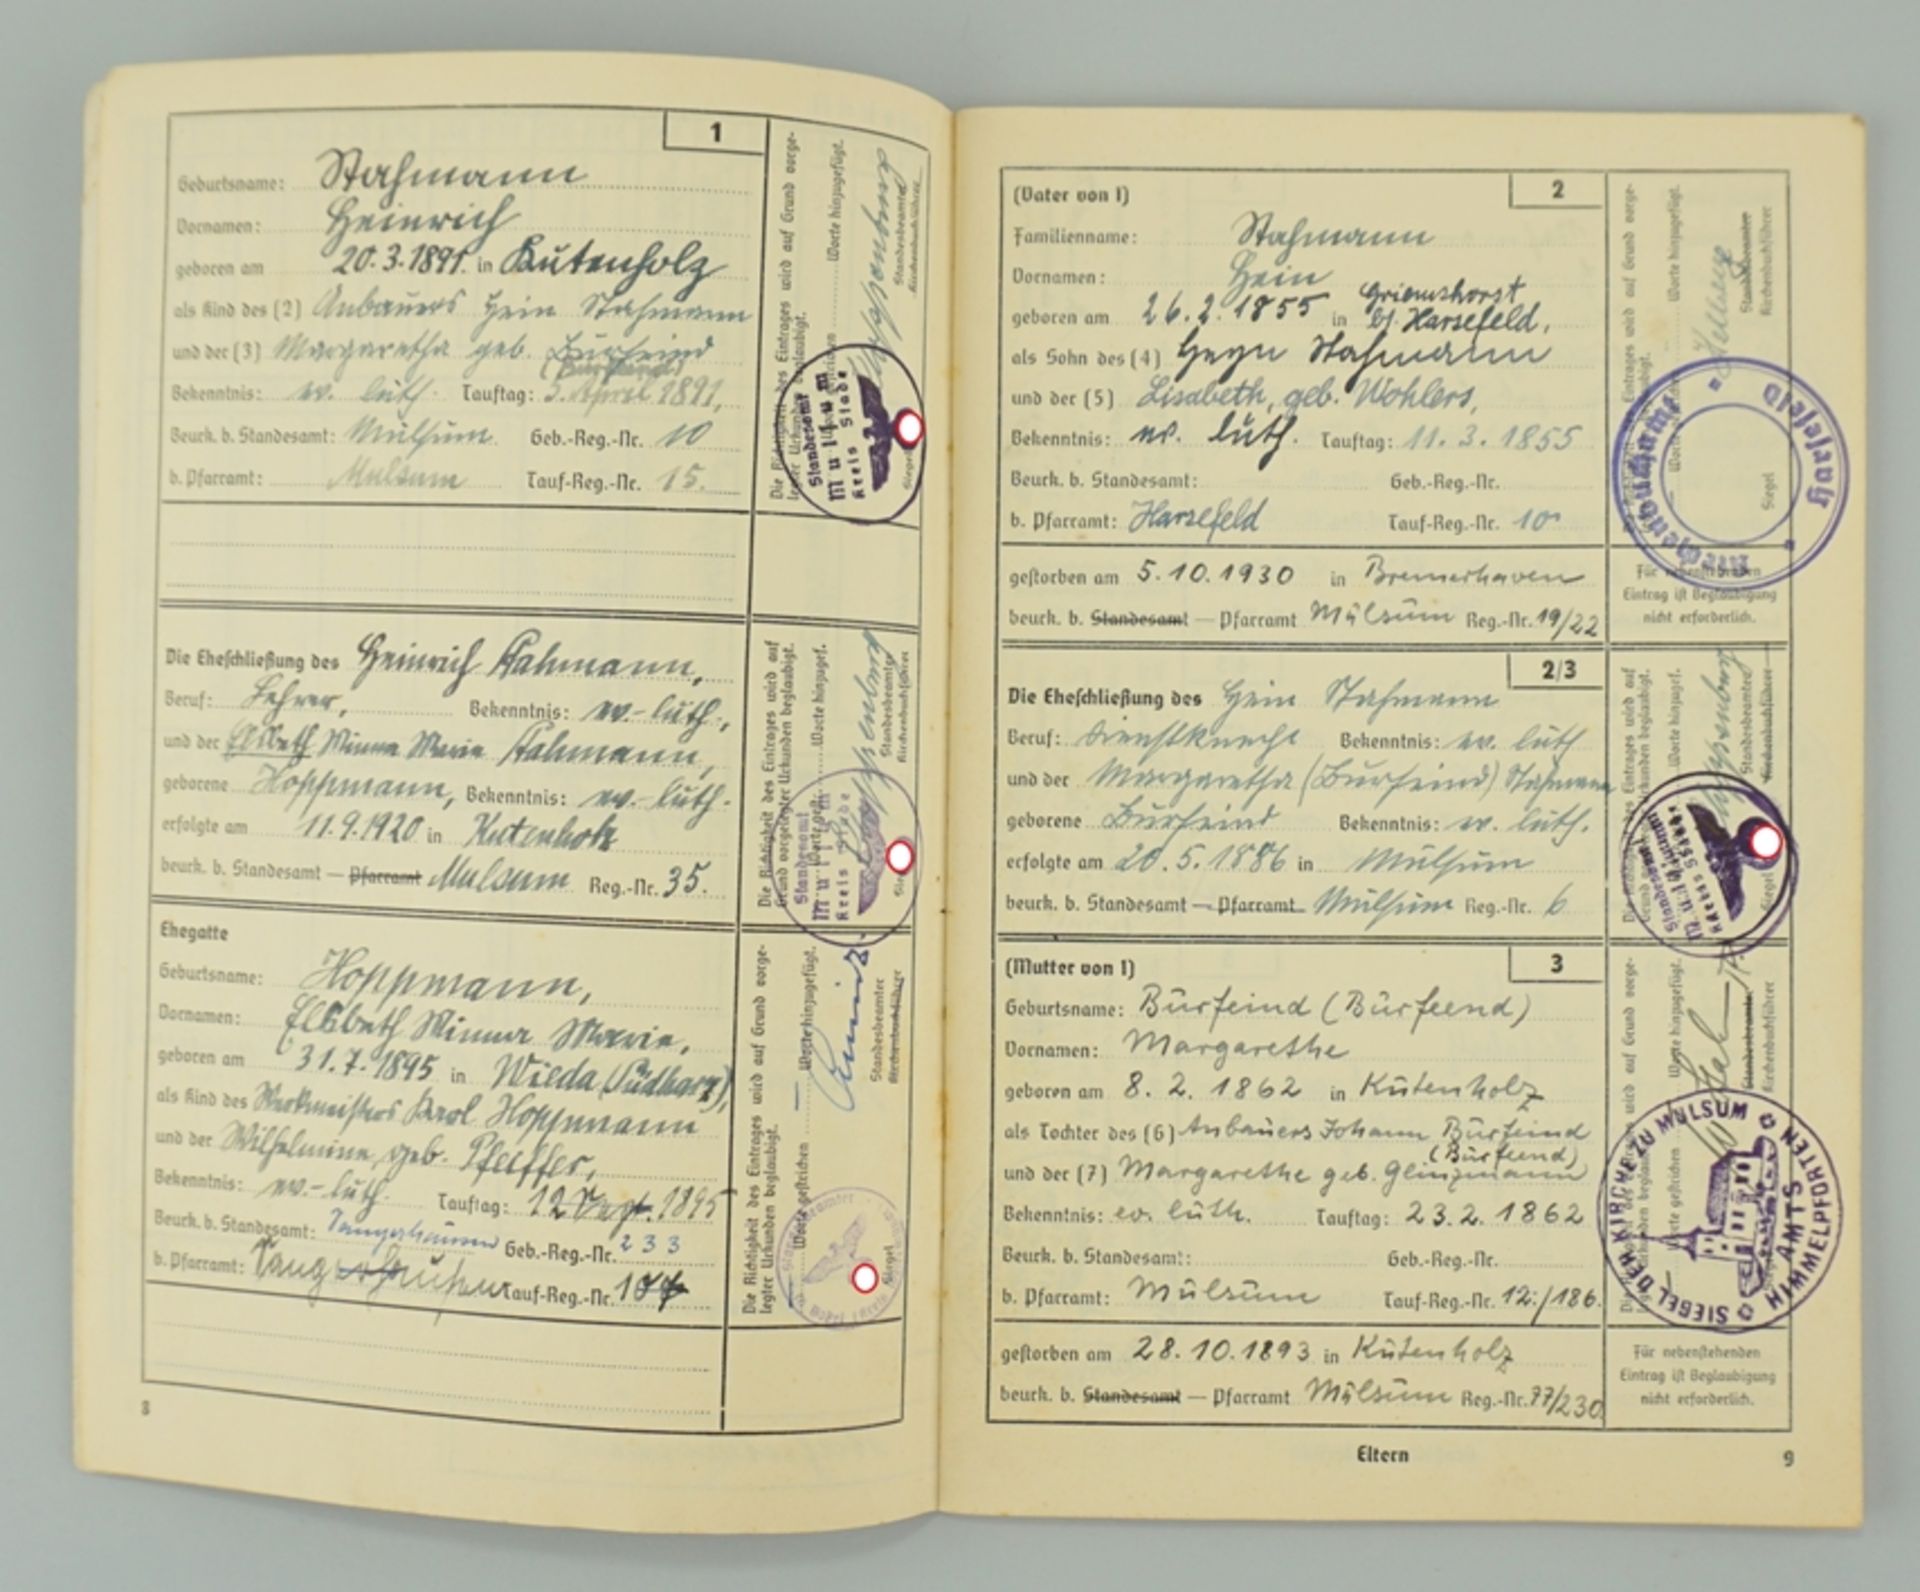 1
Geburtsname: Stahmann
Vornamen: Heinrich
geboren am 20.3.1891. in Kutenholz
als Kind des (2) Anbauers Hein Stahmann
und der (3) Margaretha geb. Burfeind
(Burfeend)
Bekenntnis: ev. luth. Tauftag: 5. April 1891,
Beurk. b. Standesamt: Mulsum Geb.-Reg.-Nr. 10
b. Pfarramt: Mulsum Tauf-Reg.-Nr. 15.
Die Richtigkeit des Eintrages wird auf Grund vorge-
legter Urkunden beglaubigt.
Worte hinzugefügt.
Standesbeamter
Kirchenbuchführer
Standesamt
Mulsum
Kreis Stade
Siegel
Die Eheschließung des Heinrich Stahmann,
Beruf: Lehrer, Bekenntnis: ev.-luth.,
und der Elsbeth Minna Marie Stahmann,
geborene Hoppmann, Bekenntnis: ev.-luth.
erfolgte am 11.9.1920 in Kutenholz
beurk. b. Standesamt — Pfarramt Mulsum Reg.-Nr. 35.
Die Richtigkeit des Eintrages wird auf
Grund vorgelegter Urkunden beglaubigt.
Worte hinzugef.
Standesbeamter
Kirchenbuchführer
Standesamt
Mulsum
Kreis Stade
Ehegatte
Geburtsname: Hoppmann,
Vornamen: Elsbeth Minna Marie,
geboren am 31.7.1895 in Wieda (Südharz),
als Kind des Werkmeisters Karl Hoppmann
und der Wilhelmine geb. Pfeiffer,
Bekenntnis: ev.-luth. Tauftag: 12 Sept. 1895
Beurk. b. Standesamt: Sangerhausen Geb.-Reg.-Nr. 233
b. Pfarramt: Tauf-Reg.-Nr.
Die Richtigkeit des Eintrages wird auf Grund vorge-
legter Urkunden beglaubigt.
Worte gestrichen — Worte hinzugefügt.
Standesbeamter
Kirchenbuchführer
Siegel
8
(Vater von 1) 2
Familienname: Stahmann
Vornamen: Hein
geboren am 26.2.1855 in Griemshorst
bj. Harsefeld,
als Sohn des (4) Heyn Stahmann
und der (5) Lisabeth, geb. Wohlers,
Bekenntnis: ev. luth. Tauftag: 11.3.1855
Beurk. b. Standesamt: Geb.-Reg.-Nr.
b. Pfarramt: Harsefeld Tauf-Reg.-Nr. 10
Worte hinzugefügt.
Standesbeamter
Kirchenbuchführer
Kirchenbuchamt
Harsefeld
Siegel
gestorben am 5.10.1930 in Bremerhaven
beurk. b. Standesamt — Pfarramt Mulsum Reg.-Nr. 19/22
Für nebenstehenden
Eintrag ist Beglaubigung
nicht erforderlich.
2/3
Die Eheschließung des Hein Stahmann
Beruf: Dienstknecht Bekenntnis: ev. luth
und der Margaretha (Burfeind) Stahmann
geborene Burfeind Bekenntnis: ev. luth.
erfolgte am 20.5.1886 in Mulsum
beurk. b. Standesamt — Pfarramt Mulsum Reg.-Nr. 6
Worte hinzugef.
Standesbeamter
Kirchenbuchführer
Standesamt
Mulsum
Kreis Stade
Siegel
(Mutter von 1) 3
Geburtsname: Burfeind (Burfeend)
Vornamen: Margarethe
geboren am 8.2.1862 in Kutenholz
als Tochter des (6) Anbauers Johann Burfeind
(Burfeend)
und der (7) Margarethe geb.
Bekenntnis: ev. luth. Tauftag: 23.2.1862
Beurk. b. Standesamt: Geb.-Reg.-Nr.
b. Pfarramt: Mulsum Tauf-Reg.-Nr. 12./186.
Worte hinzugefügt.
Standesbeamter
Kirchenbuchführer
SIEGEL DER KIRCHE ZU MULSUM
AMTS HIMMELPFORTEN
gestorben am 28.10.1893 in Kutenholz
beurk. b. Standesamt — Pfarramt Mulsum Reg.-Nr. 77/230
Für nebenstehenden
Eintrag ist Beglaubigung
nicht erforderlich.
Eltern
9